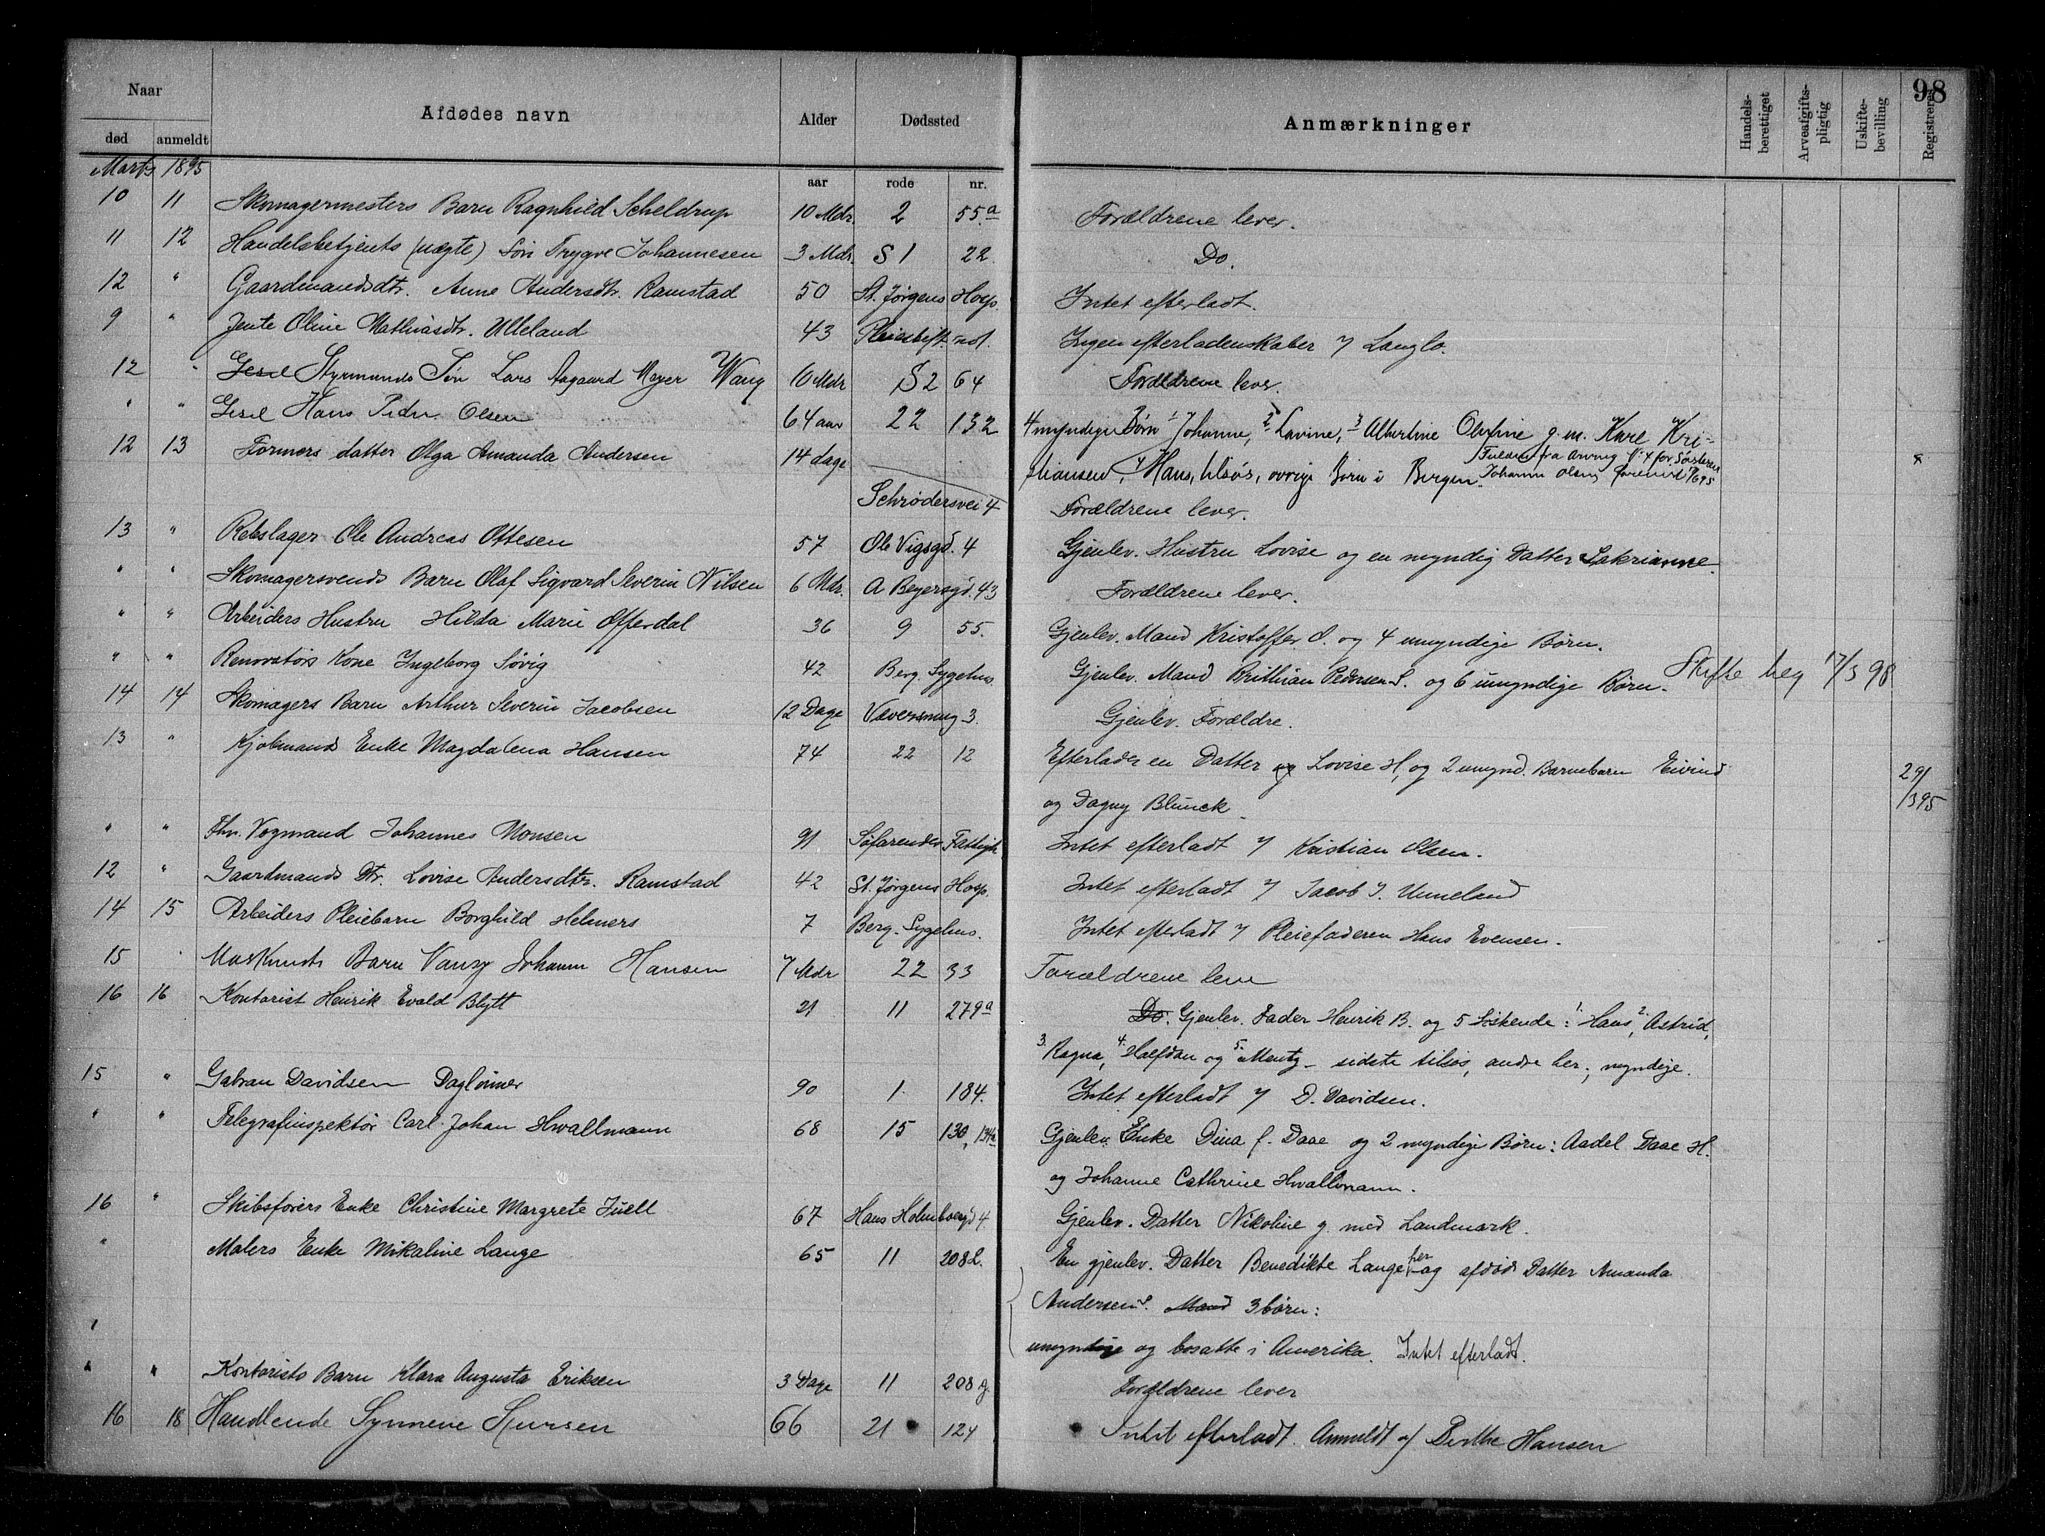 98
Naar
Afdødes navn
Alder
Dødssted
Anmærkninger
Handels-berettiget
Arveafgifts-pligtig
Uskifte-bevilling
Registreret
død anmeldt
Marts 1895
aar rode nr.
10 11 Skomagermesters Barn Ragnhild Scheldrup 10 Mdr. 2 55a Forældrene lever.
11 12 Handelsbetjents (uægte) Søn Trygve Johannesen 3 Mdr. S 1 22 Do.
12 " Gaardmandsdtr. Anne Andersdtr. Ramstad 50 St. Jørgens Hosp. Intet efterladt.
9 " Jente Oline Mathiasdtr. Ulleland 43 Pleiestift. Ingen efterladenskaber
12 " Gesel Styrmands Søn Lars Aagaard Meyer Wang 10 Mdr S 2 64 Forældrene lever.
" " Gesel Hans Peder Olsen 64 aar 22 132 4 myndige Børn 1 Johanne, 2 Lavine, 3 Albertine Olufine g. m. Karl Kri-
12 13 Formers datter Olga Amanda Andersen 14 dage
stiansen, 4 Hans, tilsøs, øvrige Børn i Bergen.
Schrødersvei 4 Forældrene lever.
13 " Rebslager Ole Andreas Ottesen 57 Ole Vigsgd. 4 Gjenlev. Hustru Lovise og en myndig Datter Sakrianne.
" " Skomagersvends Barn Olaf Sigvard Severin Nilsen 6 Mdr. A Beyersgd. 43 Forældrene lever.
" " Arbeiders Hustru Hilda Marie Offerdal 36 9 55. Gjenlev. Mand Kristoffer O. og 4 umyndige Børn.
" " Renovatørs Kone Ingeborg Søvig 42 Berg. Sygehus. Gjenlev. Mand Kristian Pedersen S. og 6 umyndige Børn. Skifte beg 17/3 98
14 14 Skomagers Barn Arthur Severin Jacobsen 12 Dage Væversmug 3. Gjenlev. Forældre.
13 " Kjøbmands Enke Magdalena Hansen 74 22 12 Efterlader en Datter og Lovise H, og 2 umynd. Barnebarn Eivind
29/3 95
og Dagny Blunck.
" " Fhv. Vognmand Johannes Monsen 91 Søfarendes Fattigh Intet efterladt Kristian Olsen.
12 " Gaardmands Dtr. Lovise Andersdtr. Ramstad 42 St. Jørgens Hosp. Intet efterladt Jacob J. Unneland
14 15 Arbeiders Pleiebarn Borghild Helmers 7 Berg. Sygehus. Intet efterladt Pleiefaderen Hans Evensen.
15 " Barn Johann Hansen 7 Mdr 22 33 Forældrene leve
16 16 Kontorist Henrik Evald Blytt 21 11 279a Do. Gjenlev. Fader Henrik B. og 5 Søskende: 1 Hans, 2. Astrid,
3. Ragna, 4. Halfdan og 5. Mentz - sidste tilsøs, andre her; myndige.
15 " Gabran Davidsen Daglønner 90 1. 184. Intet efterladt D. Davidsen.
" " Telegrafinspektør Carl Johan Hwallmann 68 15 130, Gjenlev. Enke Dina f. Daae og 2 myndige Børn: Aadel Daae H.
og Johanne Cathrine Hwallmann.
16 " Skibsførers Enke Christine Margrete Juell 67 Hans Holmboesgd 4 Gjenlev. Datter Nikoline g. med Landmark.
" Malers Enke Mikaline Lange 65 11 208 En gjenlev. Datter Benedikte Lange her og afdød Datter Amanda
Andersens. Mand 3 børn:
umyndige og bosatte i Amerika. Intet efterladt.
" " Kontorists Barn Klara Augusta Eriksen 3 Dage 11 208 g. Forældrene lever
16 18 Handlende Synneve Iversen 66 21 124 Intet efterladt. Anmeldt af Berthe Hansen